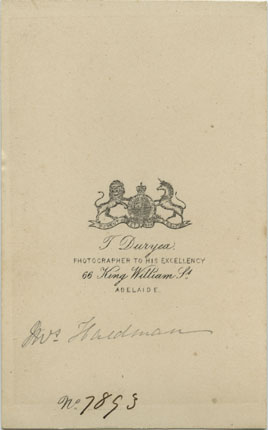 T Duryea
PHOTOGRAPHER TO HIS EXCELLENCY
66 King William St
ADELAIDE.
Mrs Haldman
No 7893